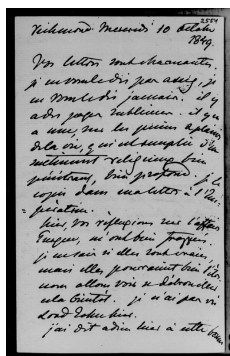 2554
Richmond Mercredi 10 octobre
1849.
Vos lettres sont charmantes.
je ne vous le dis pas assez, je
ne vous le dis jamais. il y
a des pages sublimes. il y en
a une, sur les
de la vie, qui est remplie d'un
sentiment religieux bien
pénétrant, bien profond. je la
copie dans ma lettre à l'Im-
pératrice.
hier, vos réflexions sur l'affaire
Turque, m'ont bien frappée.
je ne sais si elles sont vraies,
mais elles pourraient bien l'être
nous allons voir se débrouiller
cela bientôt. je n'ai pas vu
Lord John hier.
j'ai dit adieu hier à cette